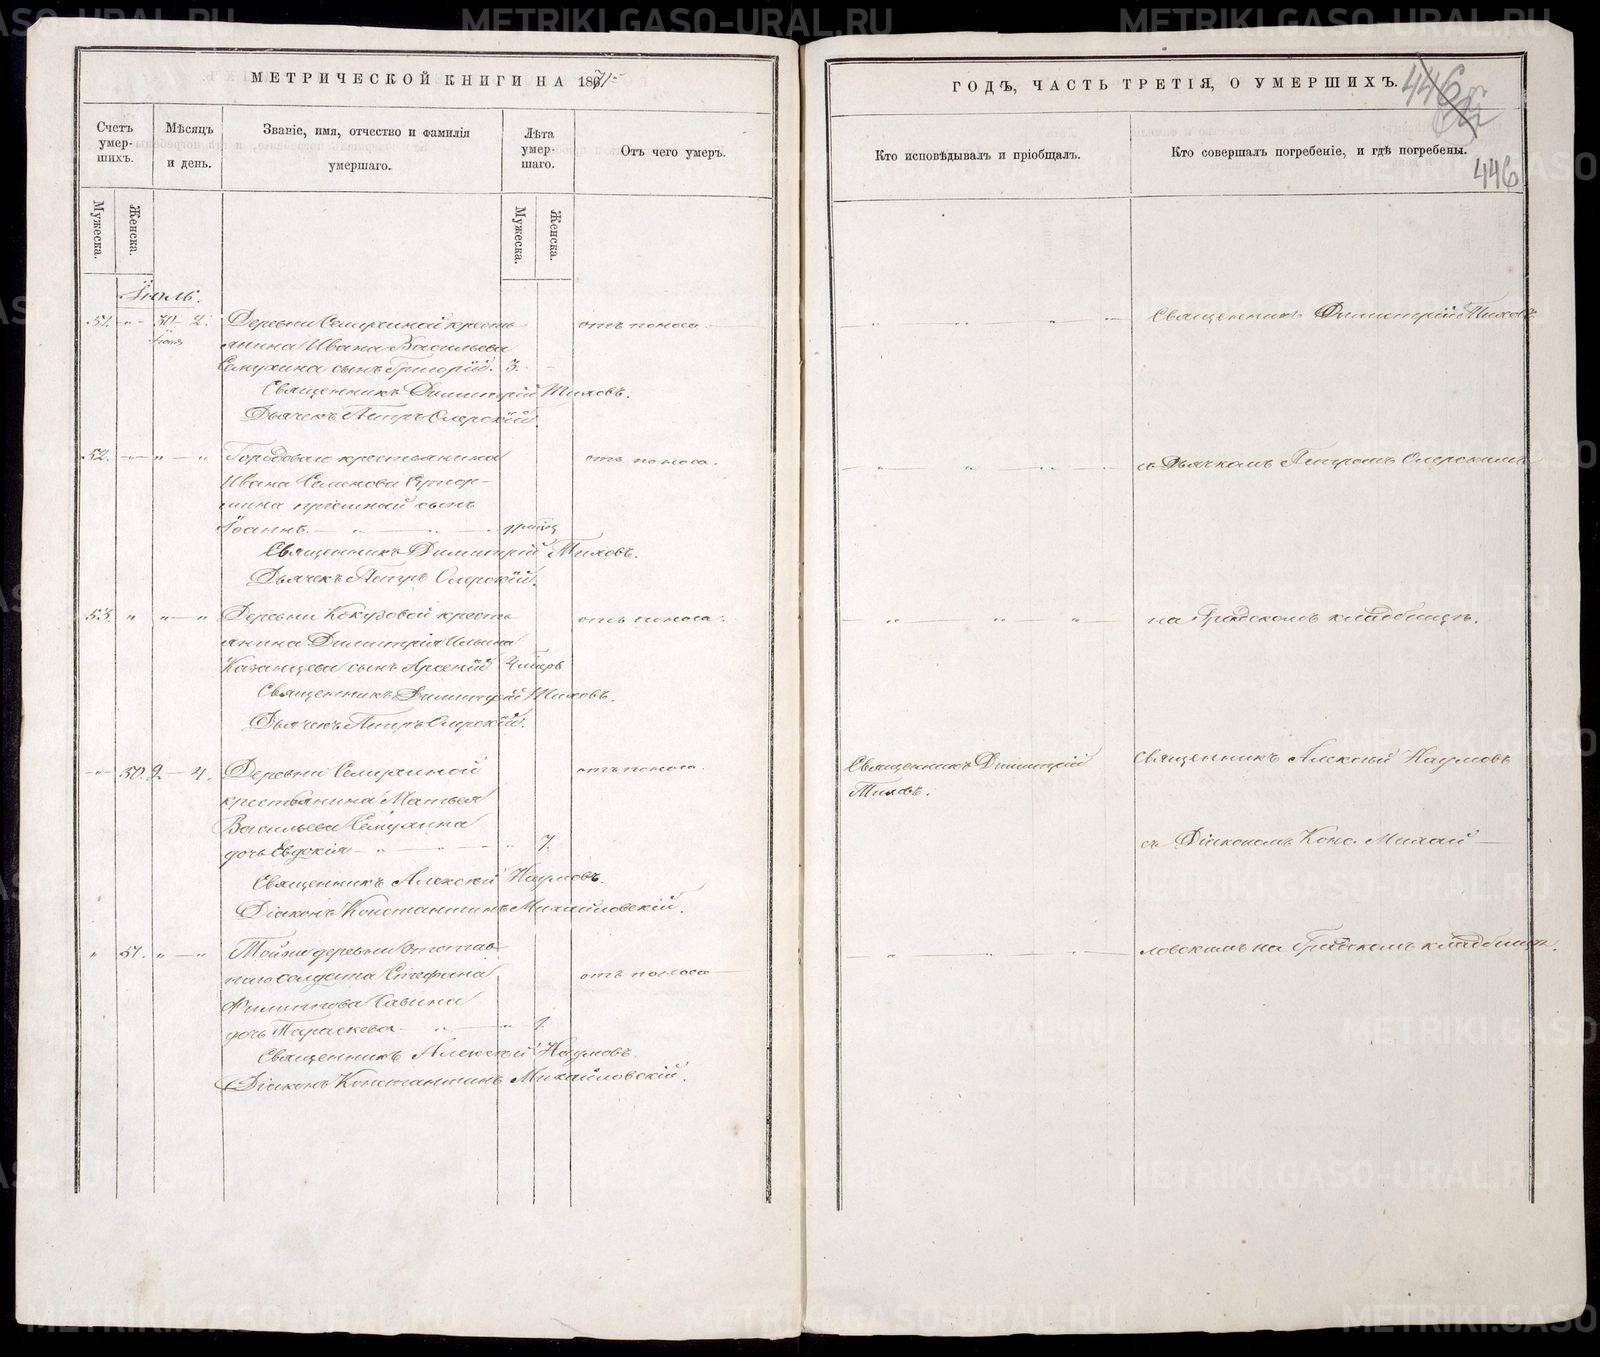 МЕТРИЧЕСКОЙ КНИГИ НА 1871
Счетъ умер-шихъ.
Мѣсяцъ и день.
Званіе, имя, отчество и фамилія умершаго.
Лѣта умер-шаго.
Отъ чего умеръ.
Мужеска.
Женска.
Мужеска.
Женска.
Іюль.
51. 30 2. Деревни Семухиной кресть
отъ поноса
Іюня
янина Ивана Васильева
Семухина сынъ Григорій. 3.
Священникъ Димитрій Тиховъ.
Дьячекъ Петръ Олерскій.
52. крестьянина
отъ поноса.
Ивана Семенова
шина пріемный сынъ
Іоаннъ
Священникъ Димитрій Тиховъ.
Дьячекъ Петръ Олерскій.
53. Деревни Кокузовой кресть
отъ поноса.
янина Димитрія Ильина
Казанцева сынъ Арсеній
Священникъ Димитрій Тиховъ.
Дьячекъ Петръ Олерскій.
50. 2. 4. Деревни Семухиной
отъ поноса.
крестьянина Матвея
Васильева Семухина
дочь Евдокія 7.
Священникъ Алексей Наумовъ.
Діаконъ Константинъ Михайловскій.
51. Тойже деревни отстав
наго солдата Стефана
отъ поноса
Филиппова Савина
дочь Параскева 1.
Священникъ Алексей Наумовъ.
Діаконъ Константинъ Михайловскій.
ГОДЪ, ЧАСТЬ ТРЕТІЯ, О УМЕРШИХЪ.
446
Кто исповѣдывалъ и пріобщалъ.
Кто совершалъ погребеніе, и гдѣ погребены.
446
Священникъ Димитрій Тиховъ
съ Дьячкомъ Петромъ Олерскимъ
на Градскомъ кладбищѣ.
Священникъ Димитрій
Тиховъ.
Священникъ Алексей Наумовъ
съ Діакономъ Конс. Михай
ловскимъ на Градскомъ кладбищѣ.
METRIKI.GASO-URAL.RU